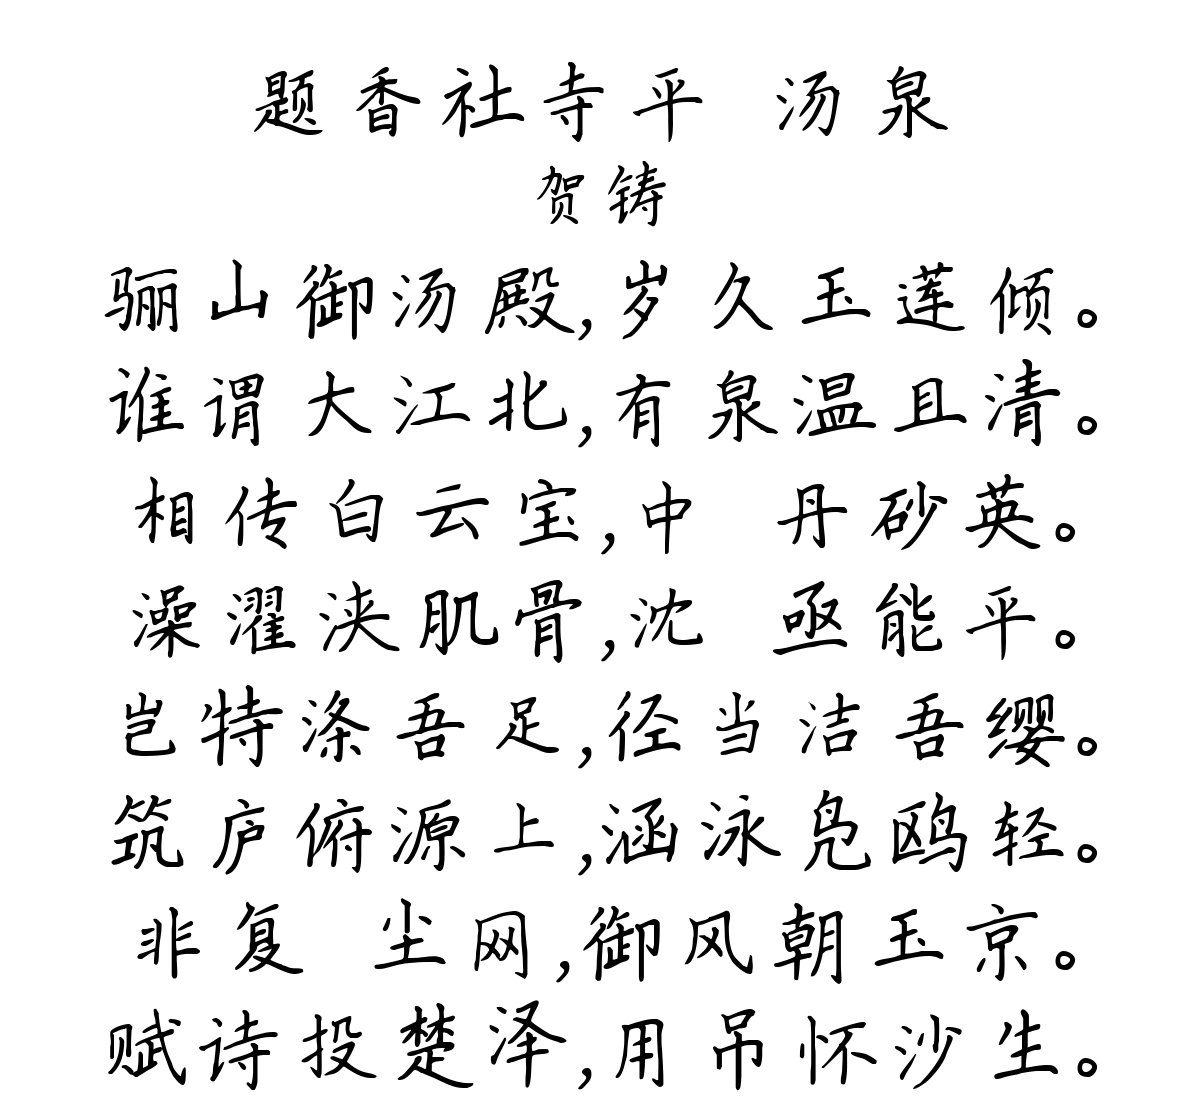 题香社寺平 汤泉
贺铸
骊山御汤殿,岁久玉莲倾。
谁谓大江北,有泉温且清。
相传白云宝,中 丹砂英。
澡濯浃肌骨,沈 亟能平。
岂特涤吾足,径当洁吾缨。
筑庐俯源上,涵泳凫鸥轻。
非复 尘网,御风朝玉京。
赋诗投楚泽,用吊怀沙生。